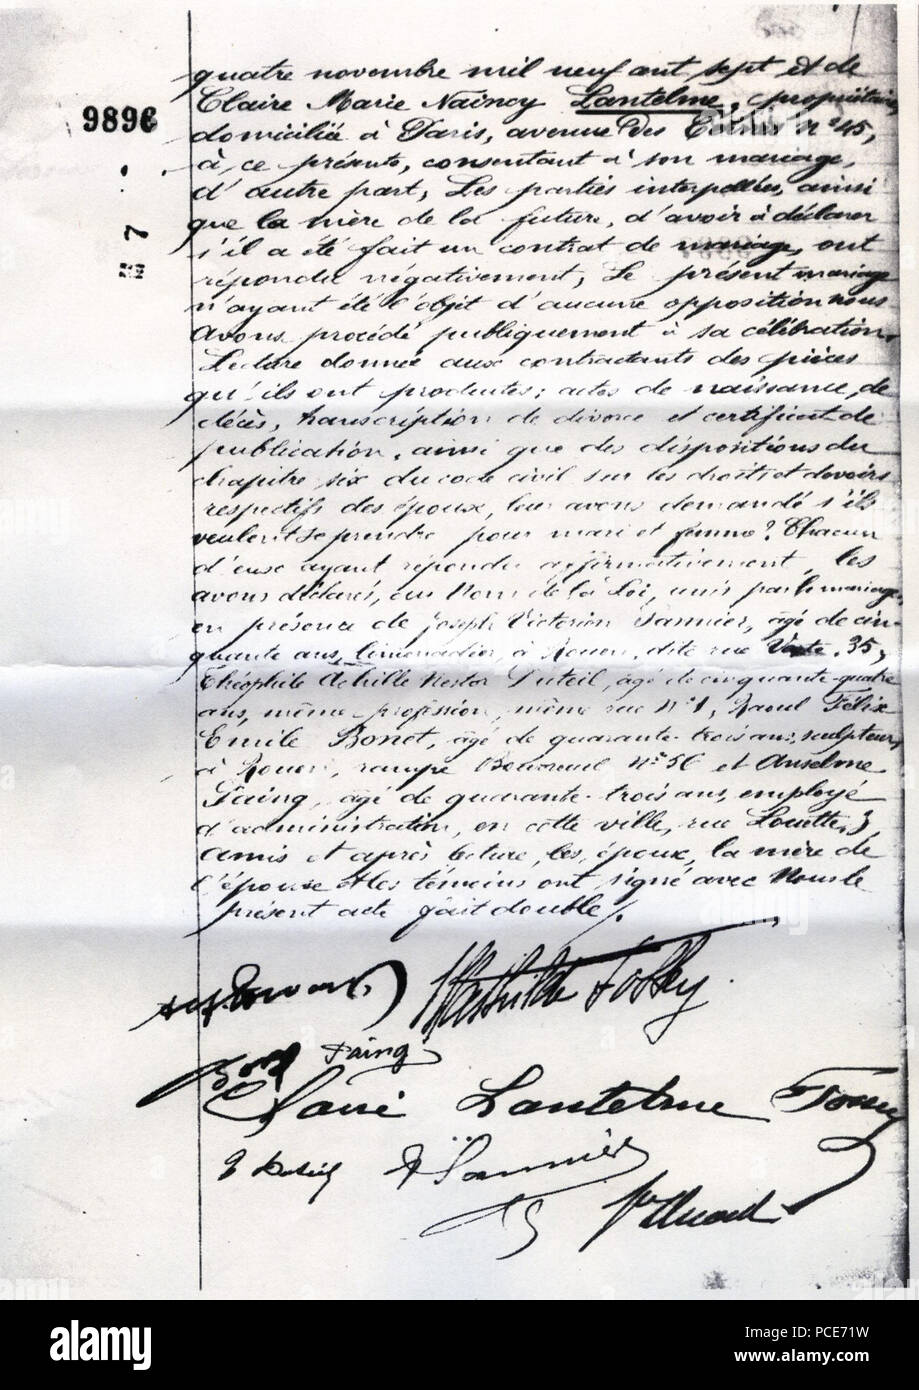 quatre novembre mil neuf cent sept et de
Claire Marie Naincy Lantelme, propriétaire,
9896
domiciliée à Paris, avenue des n° 45,
à ce présente, consentant à son mariage,
d'autre part, Les parties interpellées, ainsi
que la mère de la future, d'avoir à déclarer
7
s'il a été fait un contrat de mariage, ont
répondu négativement, Le présent mariage
n'ayant été l'objet d'aucune opposition nous
avons procédé publiquement à sa célébration.
Lecture donnée aux contractants des pièces
qu'ils ont produites; actes de naissance, de
décès, transcription de divorce et certificat de
publication, ainsi que des dispositions du
chapitre six du code civil sur les droits et devoirs
respectifs des époux, leur avons demandé s'ils
veulent se prendre pour mari et femme? Chacun
d'eux ayant répondu affirmativement, les
avons déclarés, au Nom de la Loi, unis par le mariage,
en présence de Joseph Victorien Sannier, âgé de cin-
quante ans, limonadier, à Rouen, dite rue Verte, 35,
Théophile Achille Nestor Duteil, âgé de cinquante-quatre
ans, même profession, même rue N° 1, Raoul Félix
Emile Bonet, âgé de quarante-trois ans, sculpteur,
à Rouen, rampe Bouvreuil N° 56 et Anselme
Faing, âgé de quarante-trois ans, employé
d'administration, en cette ville, rue Louette, 3,
amis et après lecture, les époux, la mère de
l'épouse et les témoins ont signé avec Nous le
présent acte fait double.
Mathilde Fossey
Faing
Claire Lantelme Fossey
Sannier
alamy
Image ID: PCE71W
www.alamy.com